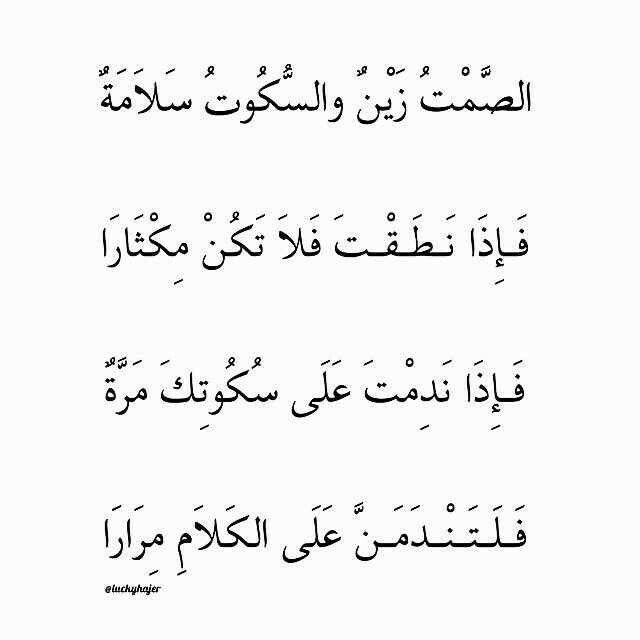 الصَّمْتُ زَيْنٌ والسُّكُوتُ سَلاَمَةٌ
فَـإِذَا نَـطَـقْـتَ فَلاَ تَكُنْ مِكْثَارَا
فَـإِذَا نَدِمْتَ عَلَى سُكُوتِكَ مَرَّةٌ
فَـلَـتَـنْـدَمَـنَّ عَلَى الكَلاَمِ مِرَارَا
@luckyhajer